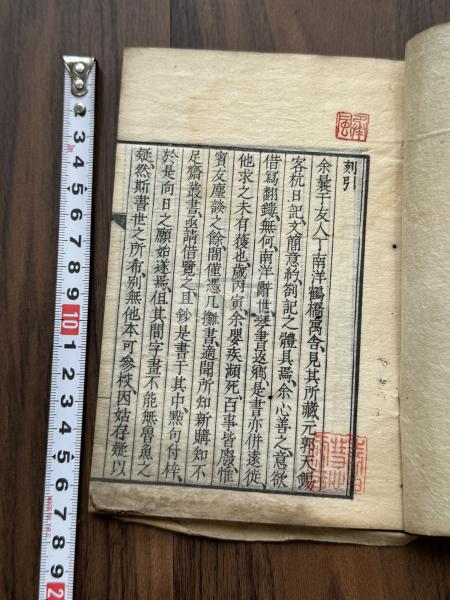 刻引
余曩于友人丁南洋鶴橋寓舍、見其所藏元郭天錫
客杭日記、文簡意約、劄記之體具焉、余心善之、意欲
借寫翻雕、無何、南洋辭世、琴書返鄉、是書亦併遠從、
他求之未有獲也、歲丙寅、余嬰疾瀕死、百事皆廢、惟
賓友塵談之餘間、僅憑几攤書、適聞所知新購知不
足齋叢書、亟請借覽之、且鈔是書于其中、點句付梓、
於是向日之願始遂焉、但其間字畫不能無魯魚之
疑、然斯書世之所布、別無他本可參挍、因姑存疑以
2
3
4
5
6
7
8
9
10
1
2
3
4
5
6
7
8
9